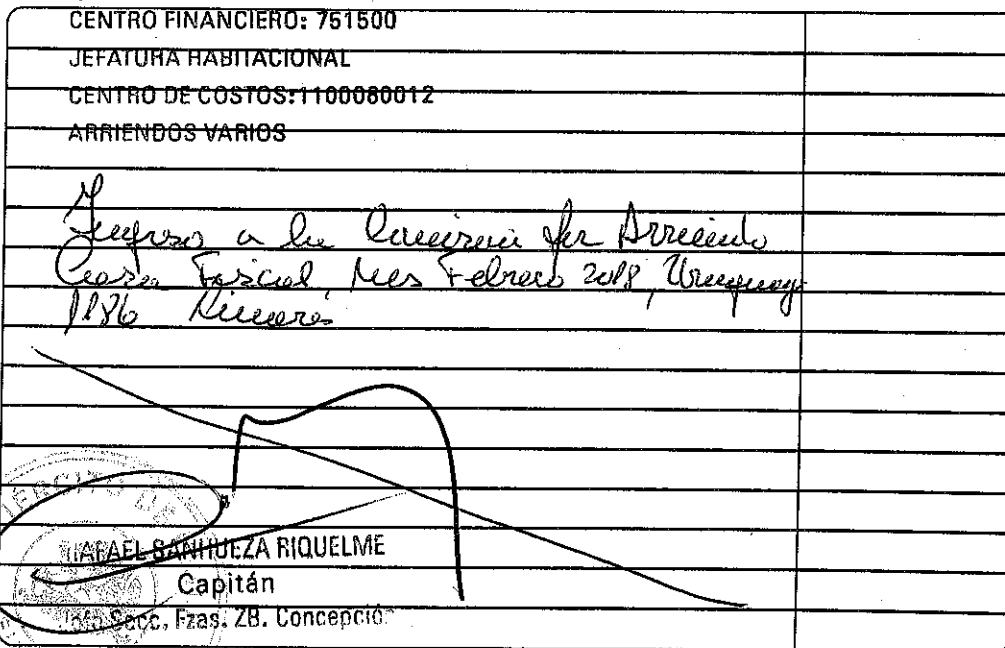 CENTRO FINANCIERO: 751500
JEFATURA HABITACIONAL
CENTRO DE COSTOS: 1100080012
ARRIENDOS VARIOS
Ingreso a la por Arriendo
Casa Fiscal, Mes Febrero 2018, Uruguay
1186
EJERCITO DE
RAFAEL SANHUEZA RIQUELME
Capitán
Jefe Secc. Fzas. ZB. Concepción